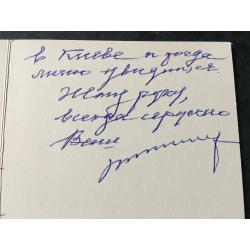 в Киеве и тогда
лично увидимся.
Жму руку,
всегда сердечно
Ваш